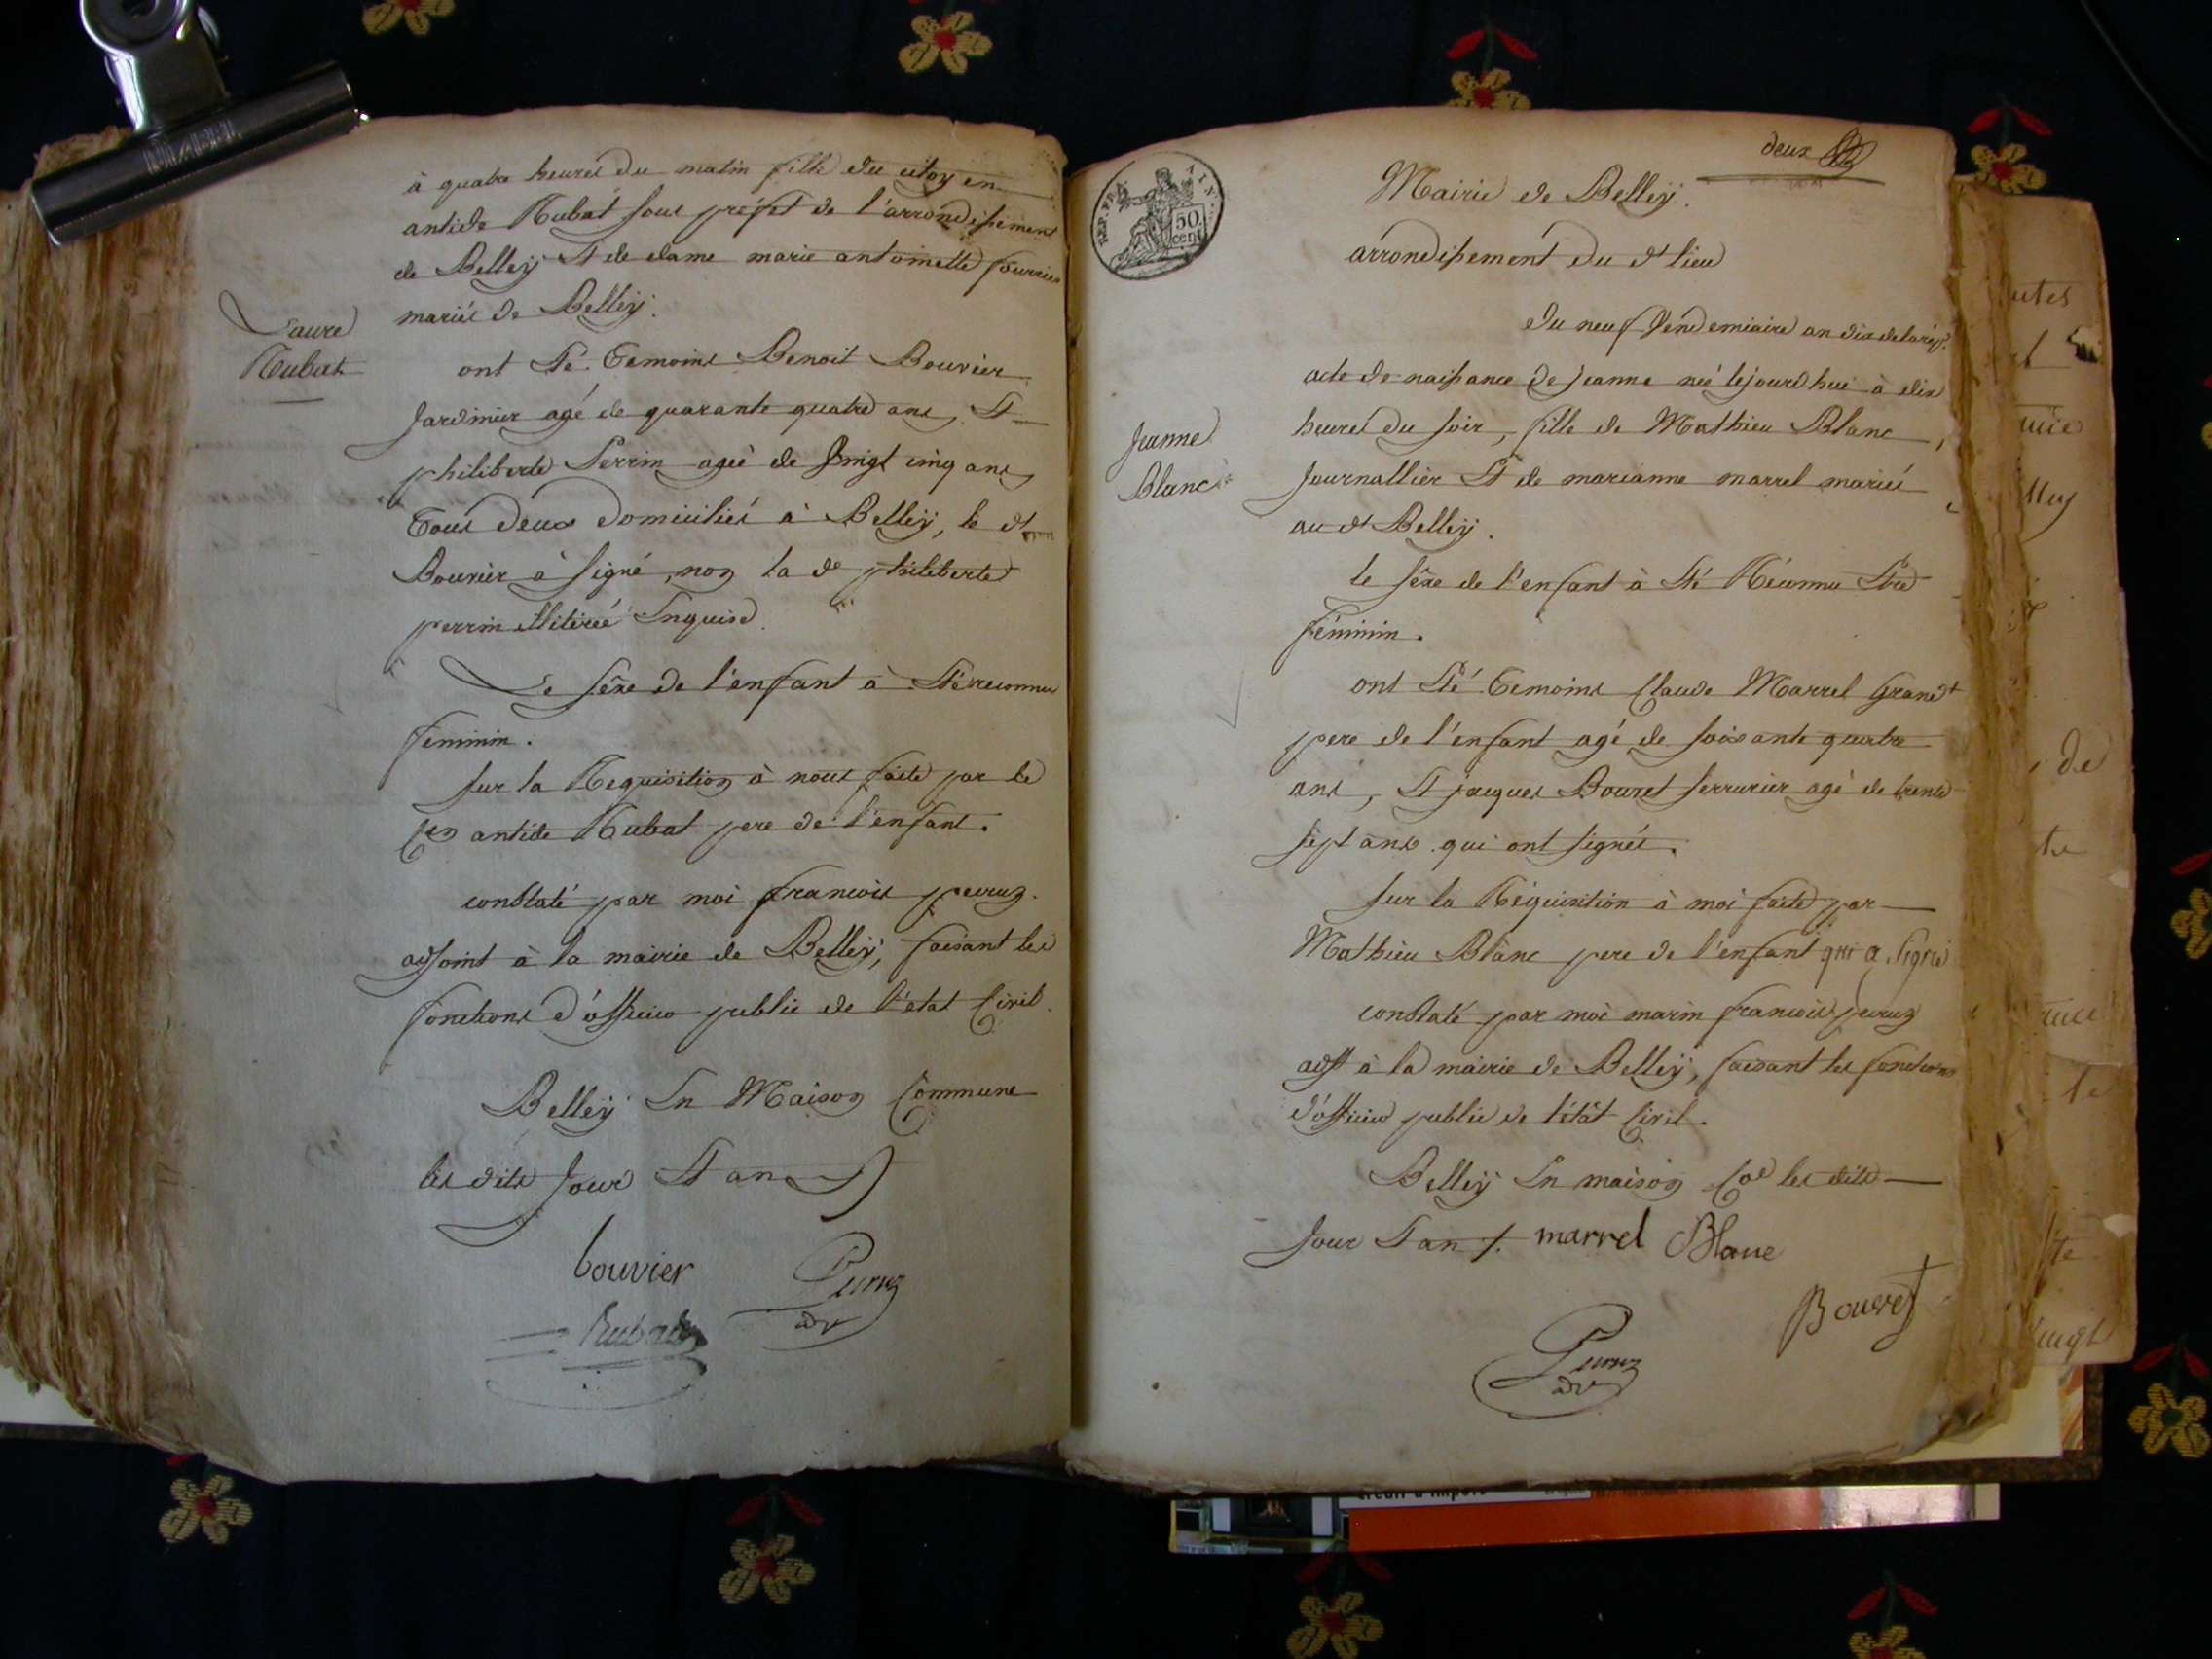 à quatre heures du matin fille du citoyen
antide Rubat sous prefet de l'arrondissement
de Belley Et de dame marie antoinette fourrier
mariés de Belley.
Laure
Rubat
ont Eté Temoins Benoit Bouvier
Jardinier agé de quarante quatre ans, Et
philiberte Perrin ageé de Vingt cinq ans
Tous deux domiciliés à Belley, le dt
Bouvier à signé, non la de philiberte
perrin illiterée Enquise.
Le sêxe de l'enfant à Eté reconnu
feminin.
sur la Requisition à nous faite par le
Cen antide Rubat pere de l'enfant.
constaté par moi francois peruz
adjoint à la mairie de Belley, faisant les
fonctions d'officier public de l'état Civil.
Belley En Maison Commune
les dits Jour Et an
bouvier
Peruz
adt
Rubat
deux
REP. FRA. AIN.
50
cent
Mairie de Belley.
arrondissement du dt lieu
du neuf Vendemiaire an dix de la rép.
Jeanne
Blanc
acte de naissance de Jeanne neé cejourdhui à dix
heures du soir, fille de Mathieu Blanc,
Journallier Et de marianne marrel mariés
au dt Belley.
le sêxe de l'enfant à Eté Réconnu Etre
féminin.
ont Eté Temoins Claude Marrel Grand
pere de l'enfant agé de soixante quatre
ans, Et jacques Bouret serrurier agé de trente
sept ans qui ont signés.
sur la Réquisition à moi faite par
Mathieu Blanc pere de l'enfant qui a signé
constaté par moi marin francois peruz
adjt à la mairie de Belley, faisant les fonctions
d'officier public de l'état Civil.
Belley En maison Coe les dits
Jour Et an /. marrel Blanc
Bouret
Peruz
adt